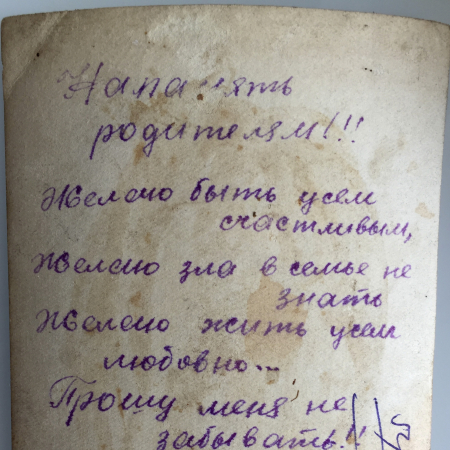 На память
родителям!!!
Желею быть усем
счастливым,
Желею зла в семье не
знать
Желею жить усем
любовно...
Прошу меня не
забывать!!